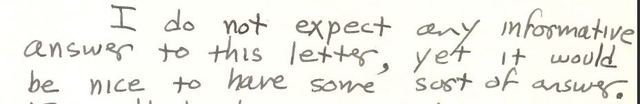 I do not expect any informative
answer to this letter, yet it would
be nice to have some sort of answer.